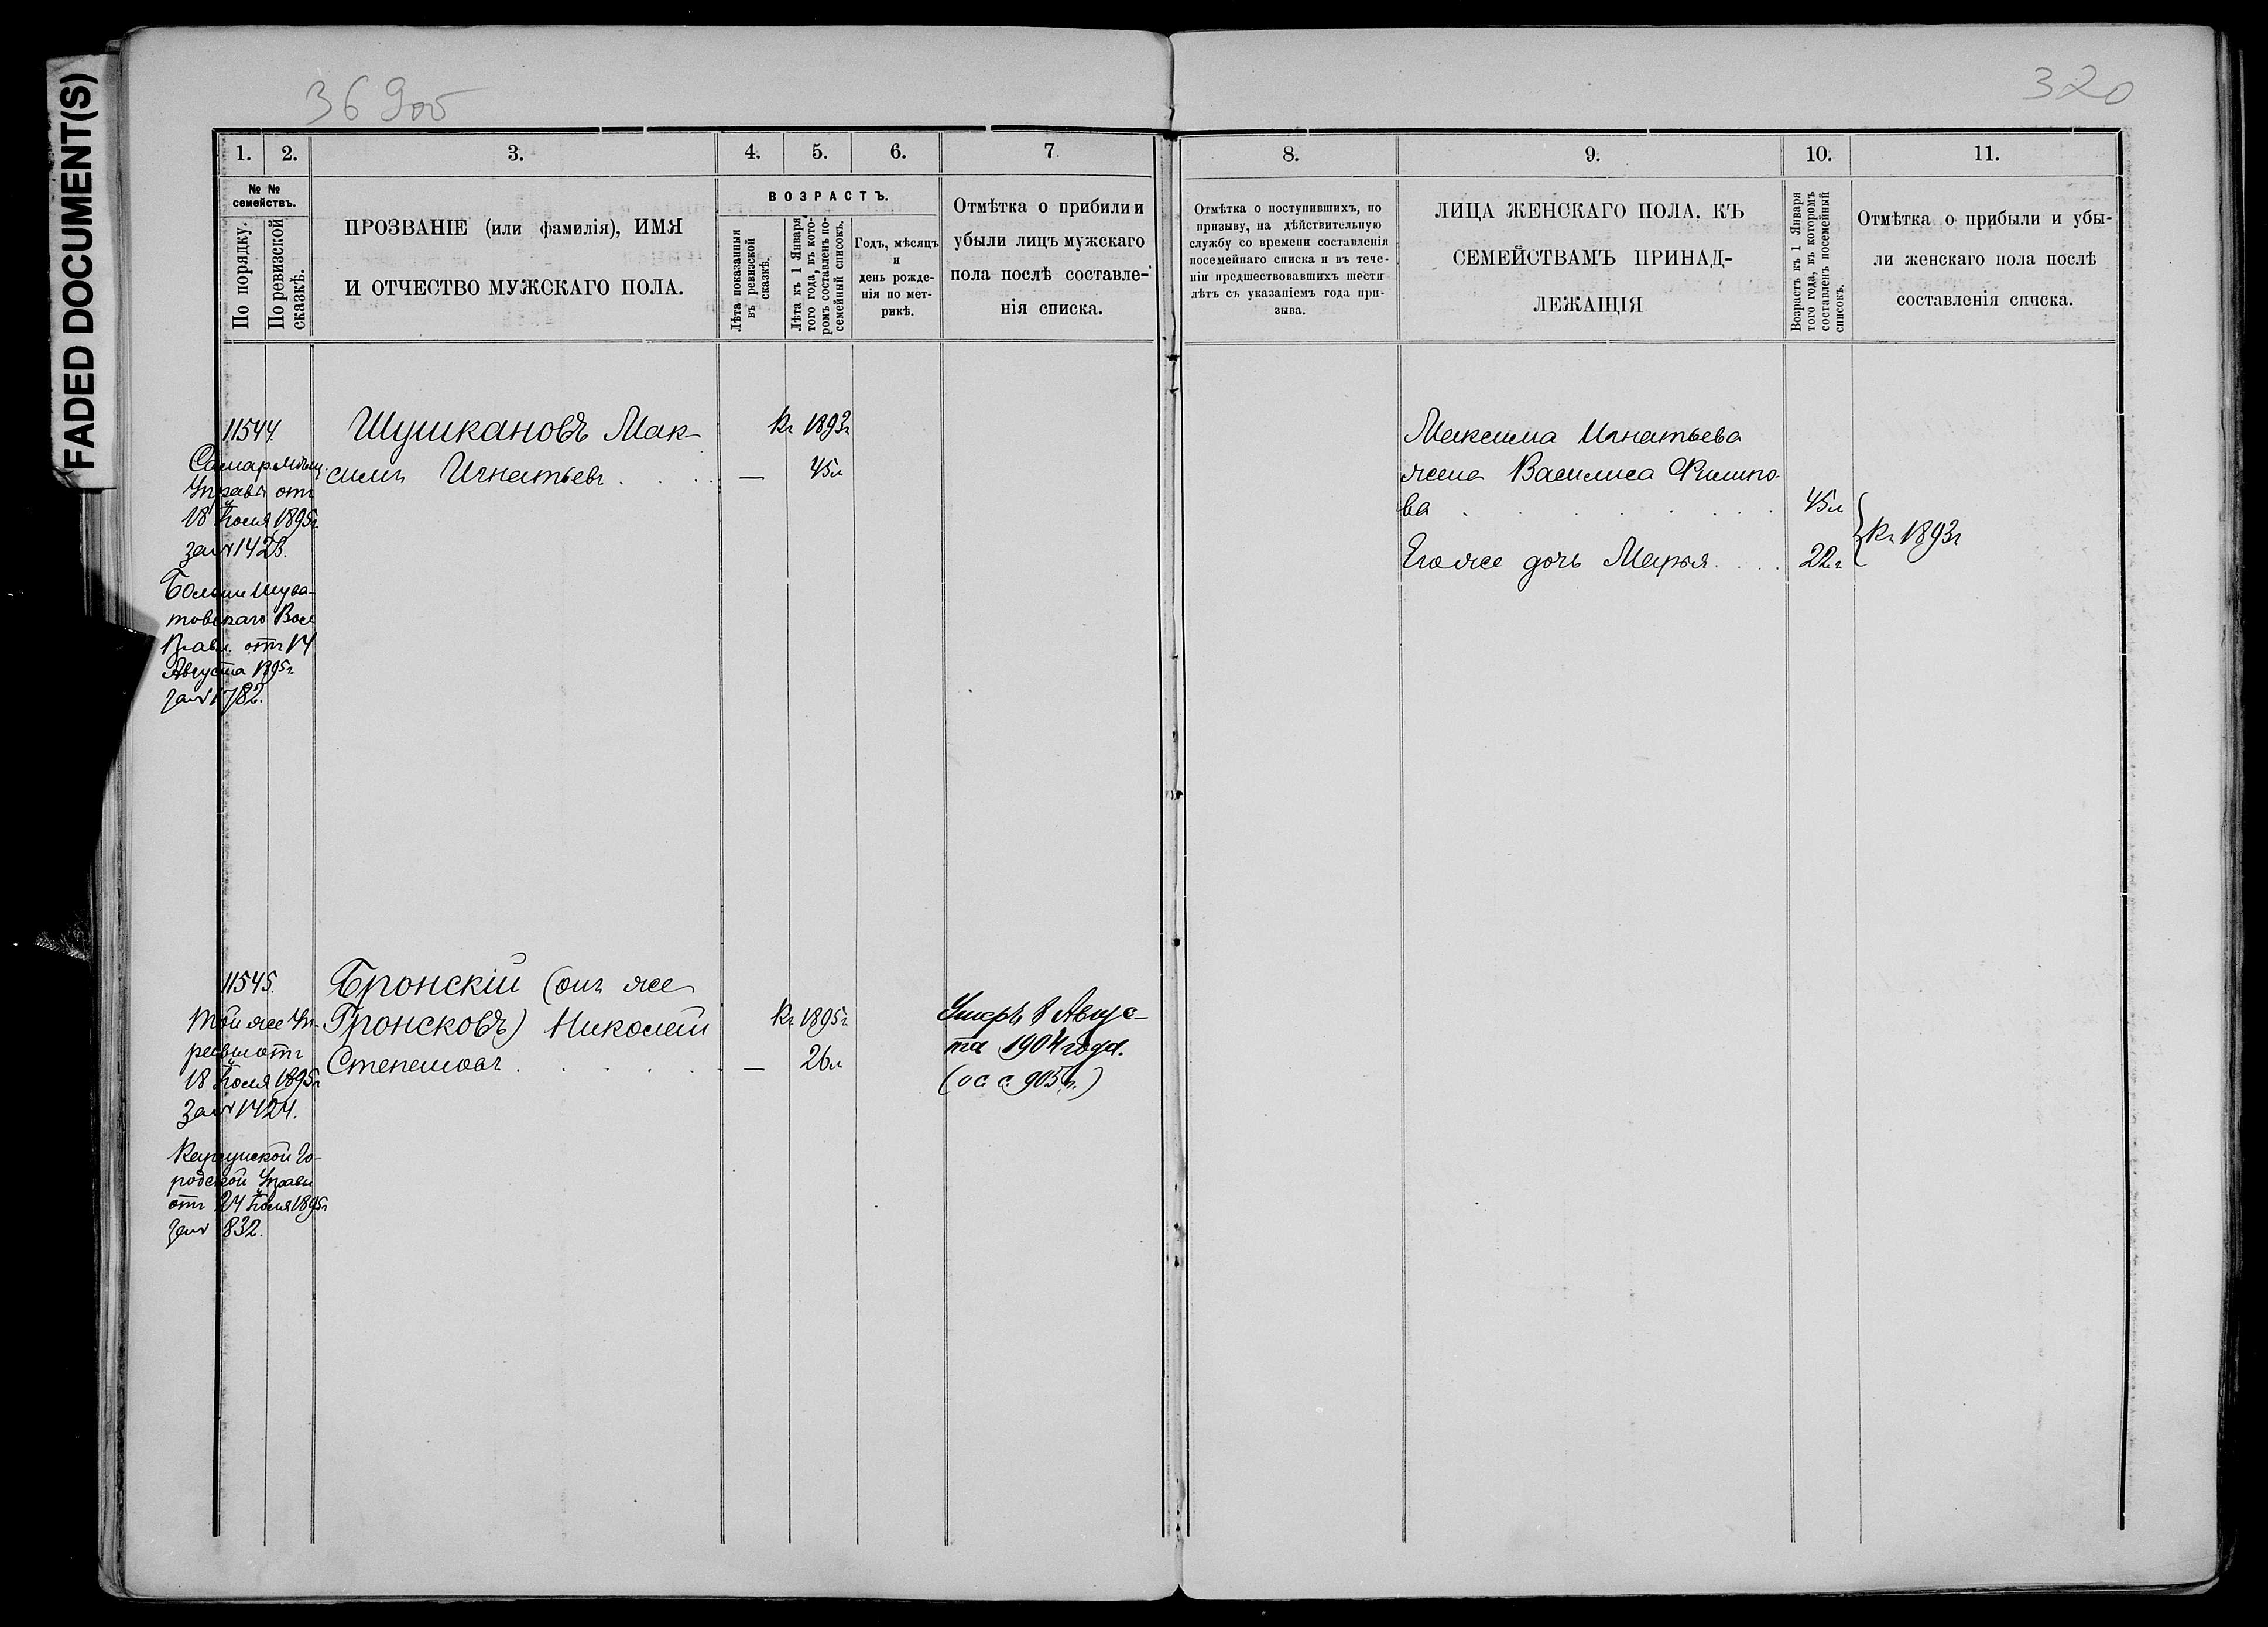 FADED DOCUMENT(S)
36 9об
320
1.
2.
3.
4.
5.
6.
7.
8.
9.
10.
11.
№ №
семействъ.
По порядку.
По ревизской
сказкѣ.
ПРОЗВАНІЕ (или фамилія), ИМЯ
И ОТЧЕСТВО МУЖСКАГО ПОЛА.
ВОЗРАСТЪ.
Лѣта показанныя
въ ревизской
сказкѣ.
Лѣта къ 1 Января
того года, въ кото-
ромъ составленъ по-
семейный списокъ.
Годъ, мѣсяцъ
и
день рожде-
нія по мет-
рикѣ.
Отмѣтка о прибили и
убыли лицъ мужскаго
пола послѣ составле-
нія списка.
Отмѣтка о поступившихъ, по
призыву, на дѣйствительную
службу со времени составленія
посемейнаго списка и въ тече-
ніи предшествовавшихъ шести
лѣтъ съ указаніемъ года при-
зыва.
ЛИЦА ЖЕНСКАГО ПОЛА, КЪ
СЕМЕЙСТВАМЪ ПРИНАД-
ЛЕЖАЩІЯ
Возрастъ къ 1 Января
того года, въ которомъ
составленъ посемейный
списокъ.
Отмѣтка о прибыли и убы-
ли женскаго пола послѣ
составленія списка.
11544.
Самар. мѣщ.
Управы отъ
18 Іюля 1895г
за № 1423.
Больше Шува-
товскаго Вол
Правл. отъ 14
Августа 1895г.
за № 1782.
Шушкановъ Мак-
симъ Игнатьевъ . . . . —
Къ 1893г
45л
Максима Игнатьева
жена Василиса Филипо-
ва . . . . . . . 45л
Его же дочь Марья . . . . 22г.
Къ 1893г
11545.
Той же Уп-
равы отъ
18 Іюля 1895г
за № 1424.
Карсунской Го-
родской Управы
отъ 24 Іюля 1895г
за № 832.
Бронскій (онъ же
Гронсковъ) Николай
Степановъ . . . . . . —
Къ 1895г
26л
Умеръ 8 Авгус-
та 1904 года.
(о с. с. 905 г.)